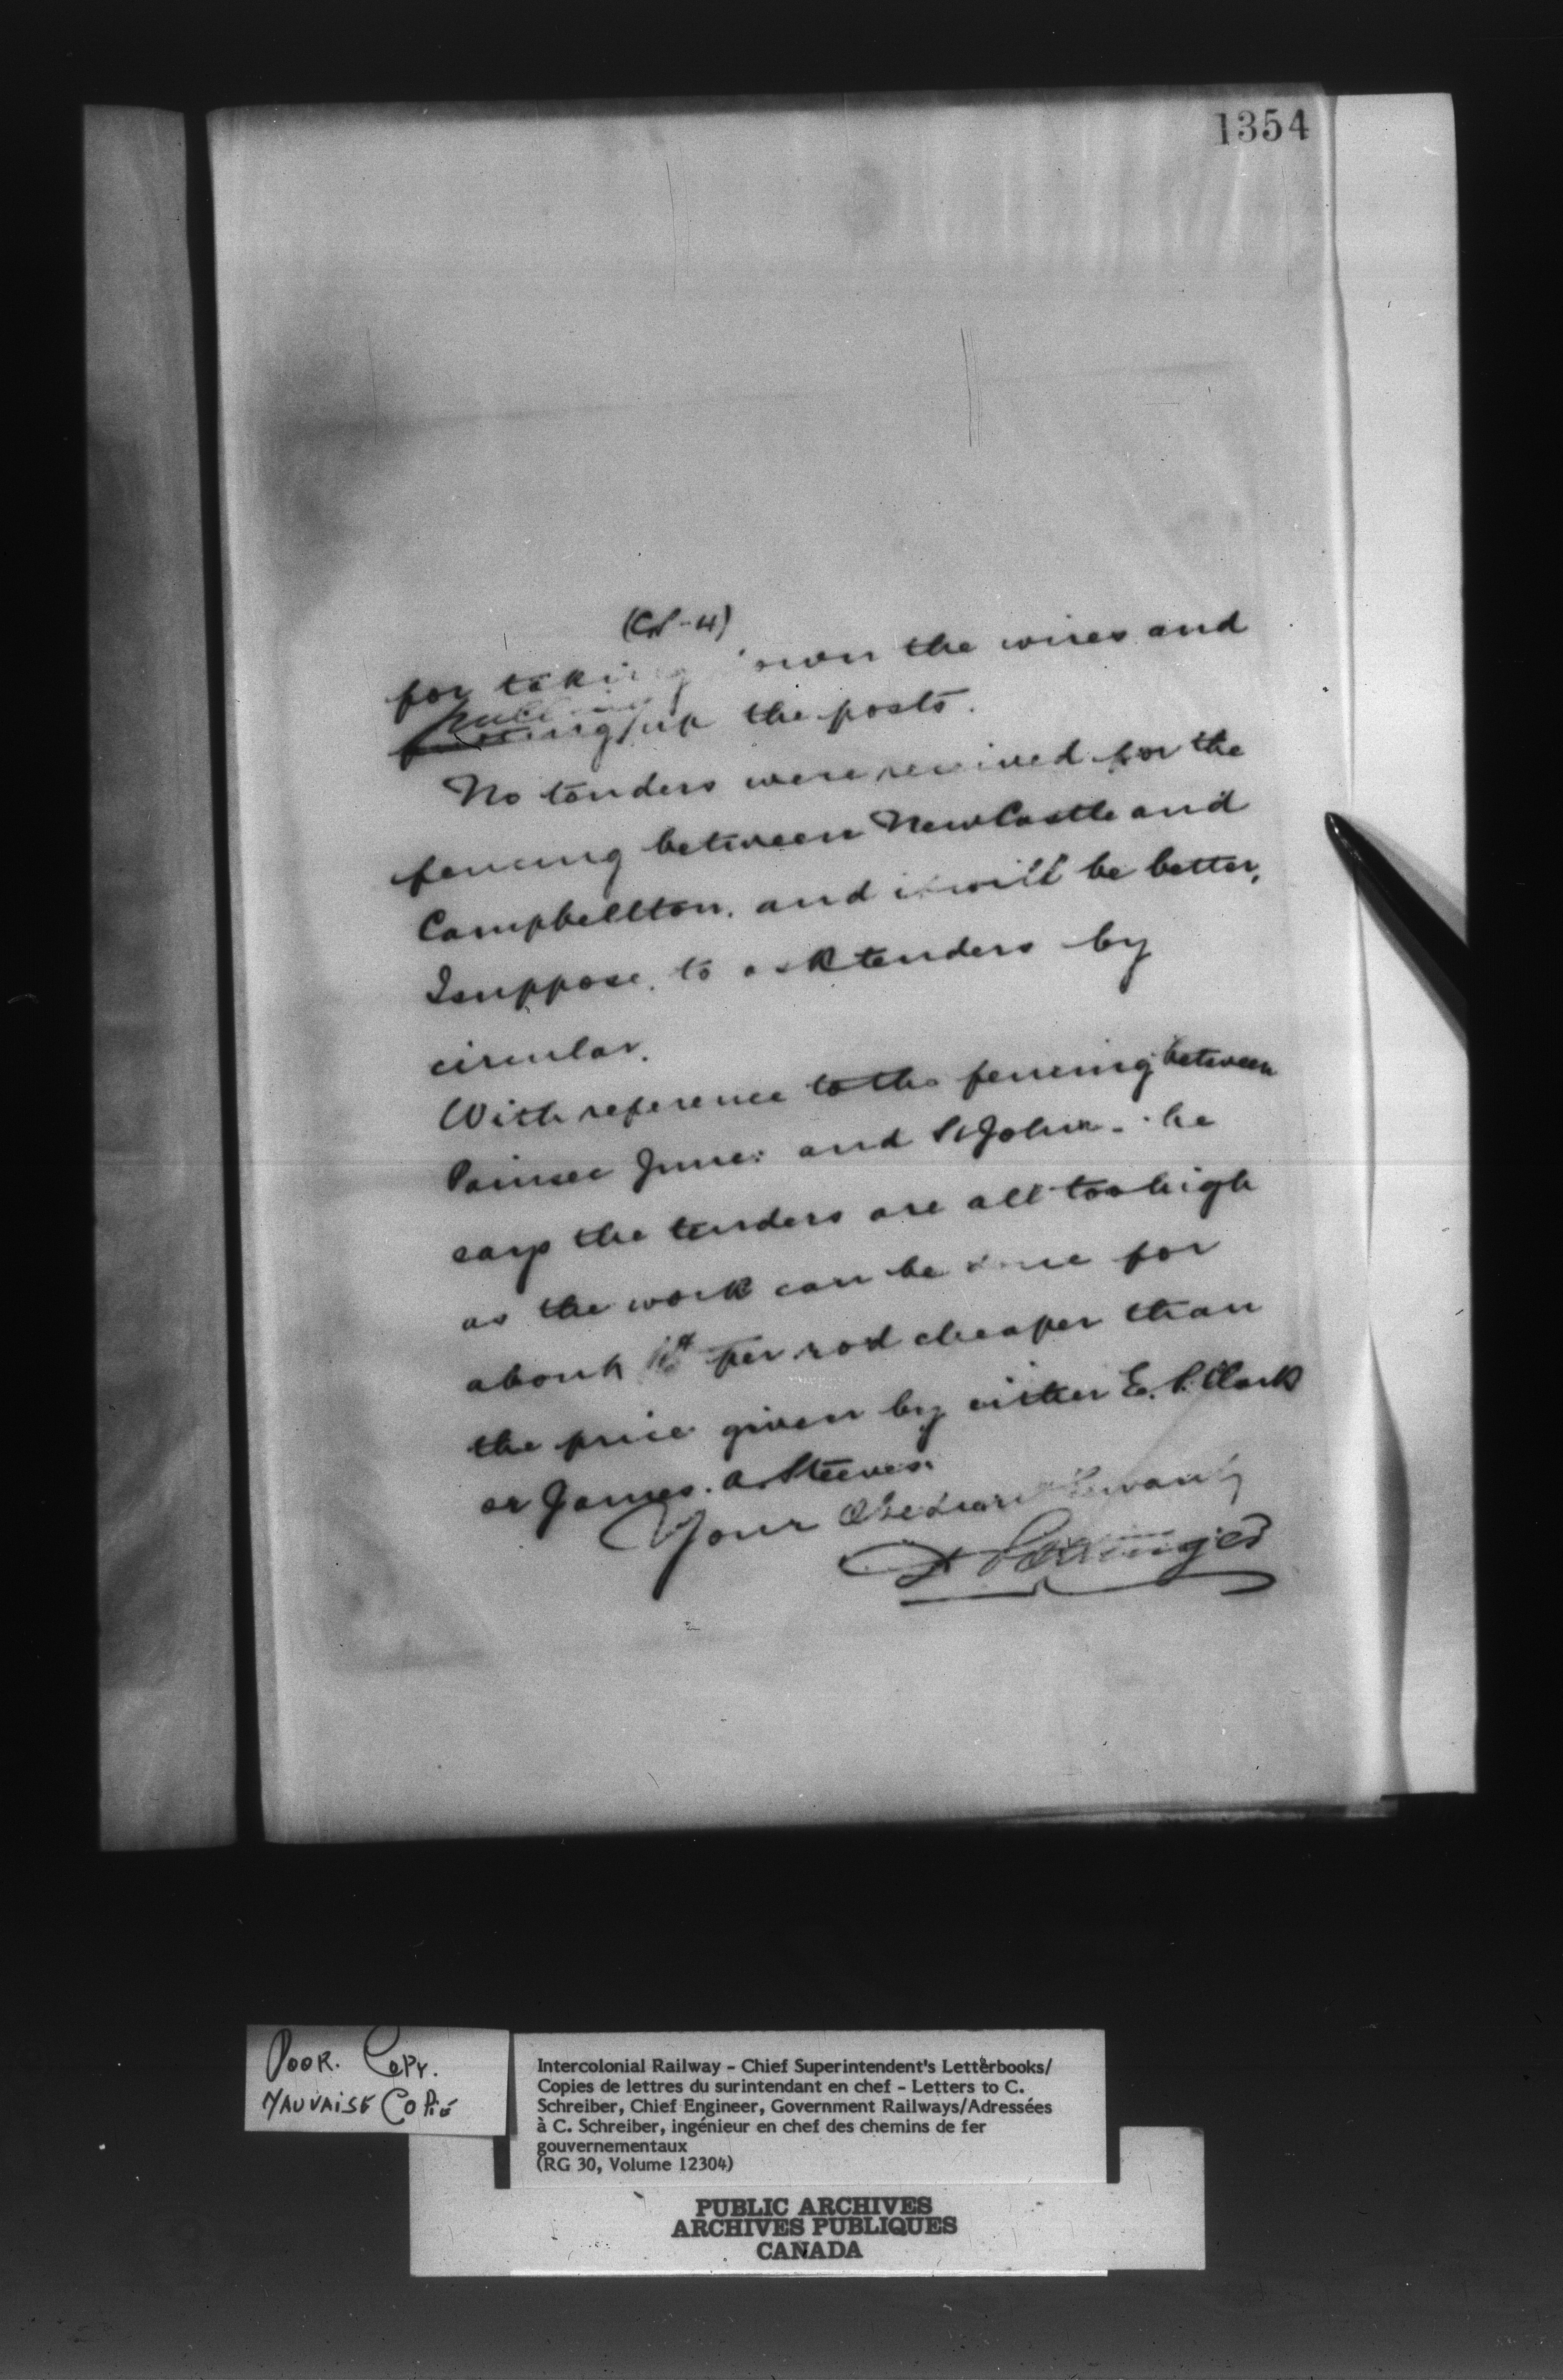 1354
for taking down the wires and
pulling up the posts.
No tenders were received for the
fencing between NewCastle and
Campbellton. and it will be better,
I suppose, to ask tenders by
circular.
With reference to the fencing between
Painsec Junc: and St John - he
says the tenders are all too high
as the work can be done for
about per rod cheaper than
the price given by either E. P. Clark
or James. A. Steeves.
Your Obedient Servant
D Pottinger
POOR. COPY.
MAUVAISE COPIE
Intercolonial Railway - Chief Superintendent's Letterbooks/
Copies de lettres du surintendant en chef - Letters to C.
Schreiber, Chief Engineer, Government Railways/Adressées
à C. Schreiber, ingénieur en chef des chemins de fer
gouvernementaux
(RG 30, Volume 12304)
PUBLIC ARCHIVES
ARCHIVES PUBLIQUES
CANADA